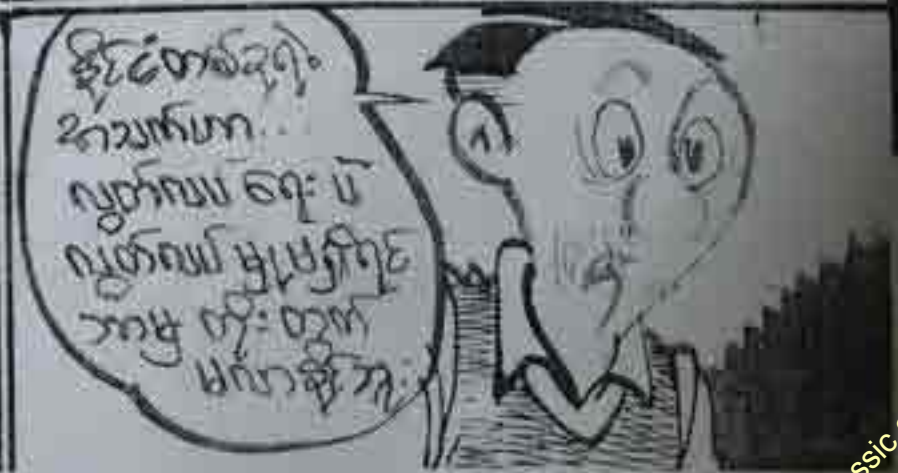 နိုင်ငံတစ်ခုရဲ့
အသက်ဟာ...
လွတ်လပ်ရေး ပဲ
လွတ်လပ် မှုမရှိရင်
ဘာမှ တိုးတွက်
မလာနိုင်ဘူး
ssic.